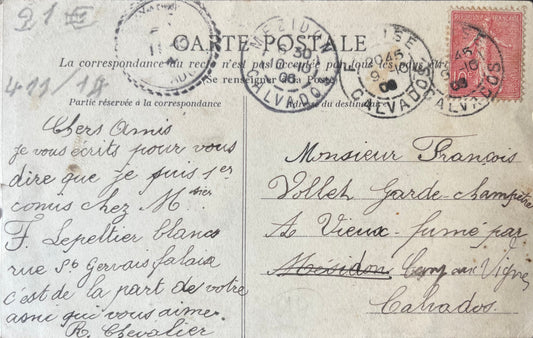 21
411 14
CARTE POSTALE
La correspondance au recto n'est pas acceptée par tous les pays étrangers
Se renseigner à la Poste
Partie réservée à la correspondance
Adresse du destinataire
MEZIDON
30
08
CALVADOS
45
9
08
CALVADOS
45
9
08
CALVADOS
POSTES
10c
Chers Amis
je vous écrits pour vous
dire que je suis 1er
comis chez Mr
F. Lepeltier blancs
rue St Gervais falaise
c'est de la part de votre
ami qui vous aime
R. Chevalier
Monsieur François
Vollet Garde-champêtre
A Vieux-fumé par
Mésidon
Calvados